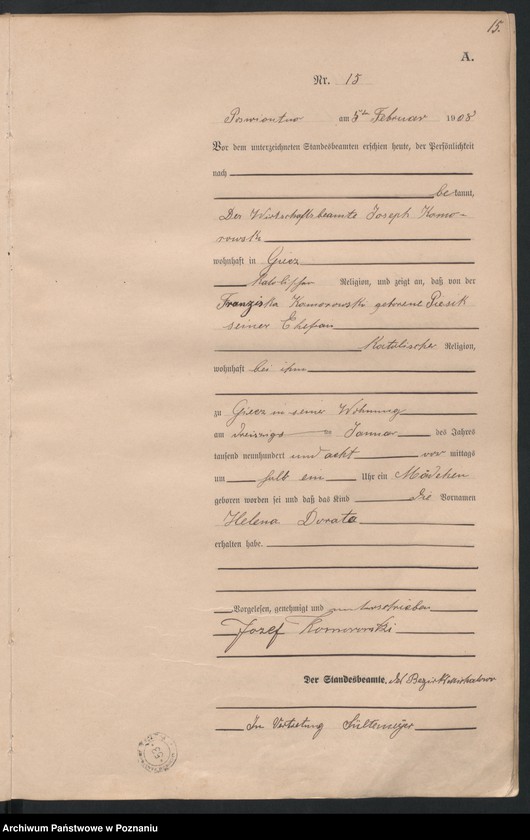 15.
A.
Nr. 15
am 5ten Februar 1908
Vor dem unterzeichneten Standesbeamten erschien heute, der Persönlichkeit
nach
be kannt,
Der Wirtschaftsbeamte Joseph Komo-
rowski
wohnhaft in Giecz
katolischer Religion, und zeigt an, daß von der
Franziska Komorowski geborene Piesik
seiner Ehefrau
katolischer Religion,
wohnhaft bei ihm
zu Giecz in seiner Wohnung
am Januar des Jahres
tausend neunhundert und acht vor mittags
um halb ein Uhr ein Mädchen
geboren worden sei und daß das Kind die Vornamen
Helena Dorata
erhalten habe.
Vorgelesen, genehmigt und unterschrieben
Jozef Komorowski
Der Standesbeamte.
In Vertretung
53
Archiwum Państwowe w Poznaniu